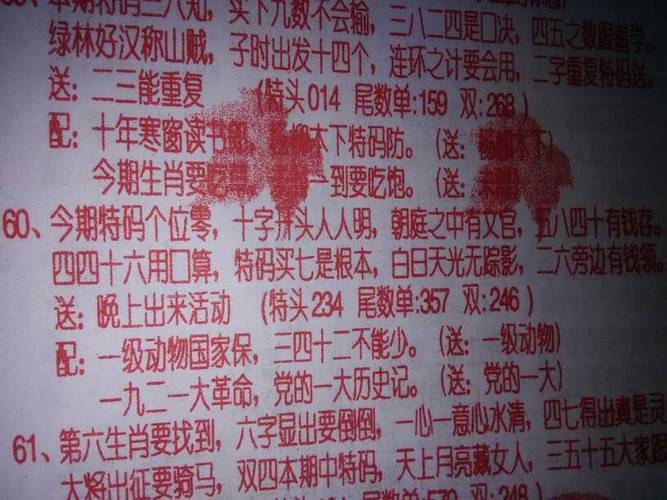 本期特码三八知，买下九数不会输，三八二四是口决，四五之数跟着学。
绿林好汉称山贼，子时出发十四个，连环之计要会用，二字重复特码送。
送：二三能重复 （特头014 尾数单:159 双:268）
配：十年寒窗读书 木下特码防。（送： 下）
今期生肖要 一到要吃饱。（送：
60、今期特码个位零，十字开头人人明，朝庭之中有文官，五八四十有钱存。
四四十六用口算，特码买七是根本，白日天光无踪影，二六旁边有钱领。
送：晚上出来活动 （特头234 尾数单:357 双:246）
配：一级动物国家保，三四十二不能少。（送：一级动物）
一九二一大革命，党的一大历史记。（送：党的一大）
61、第六生肖要找到，六字显出要倒倒，一心一意心水清，四七得出真是灵
大将出征要骑马，双四本期中特码，天上月亮藏女人，三五十五大家